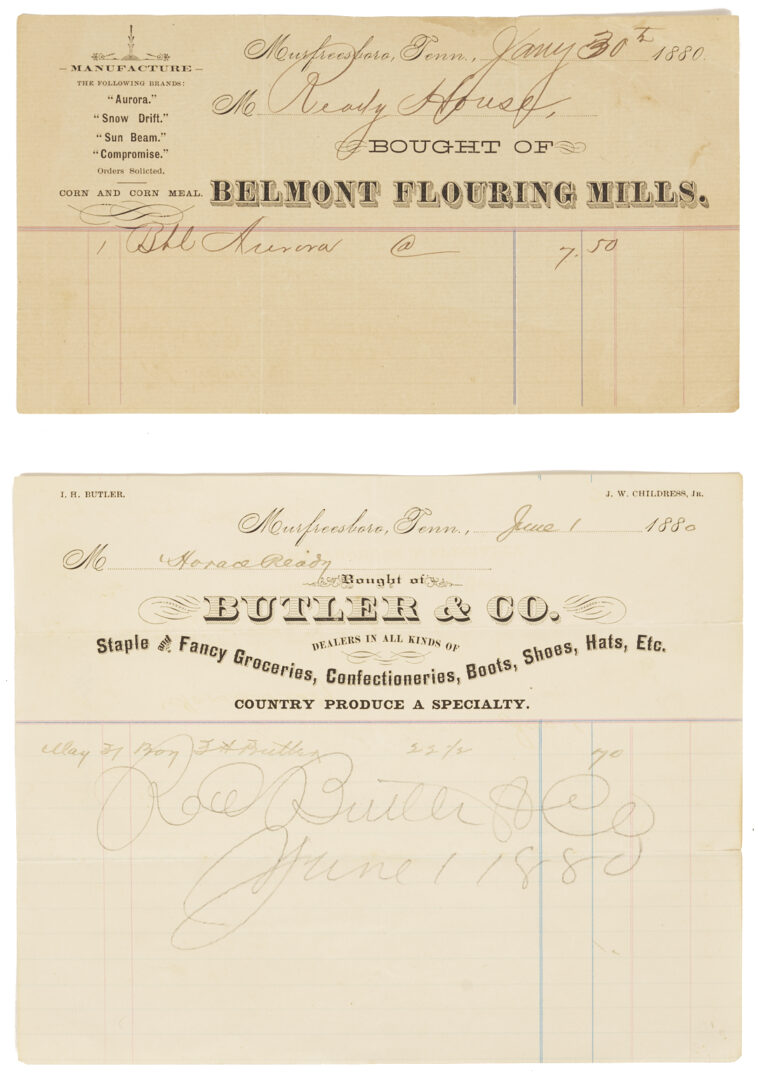 MANUFACTURE
THE FOLLOWING BRANDS:
"Aurora."
"Snow Drift."
"Sun Beam."
"Compromise."
Orders Solicited.
CORN AND CORN MEAL.
Murfreesboro, Tenn., Jany 30th 1880.
M Ready House,
BOUGHT OF
BELMONT FLOURING MILLS.
1 Bbl Aurora @ 7.50
I. H. BUTLER. J. W. CHILDRESS, JR.
Murfreesboro, Tenn., June 1 1880
M Horace Ready
Bought of
BUTLER & CO.
DEALERS IN ALL KINDS OF
Staple and Fancy Groceries, Confectioneries, Boots, Shoes, Hats, Etc.
COUNTRY PRODUCE A SPECIALTY.
May 31 Butler 22 1/2 70
Recd Butler & Co
June 1 1880